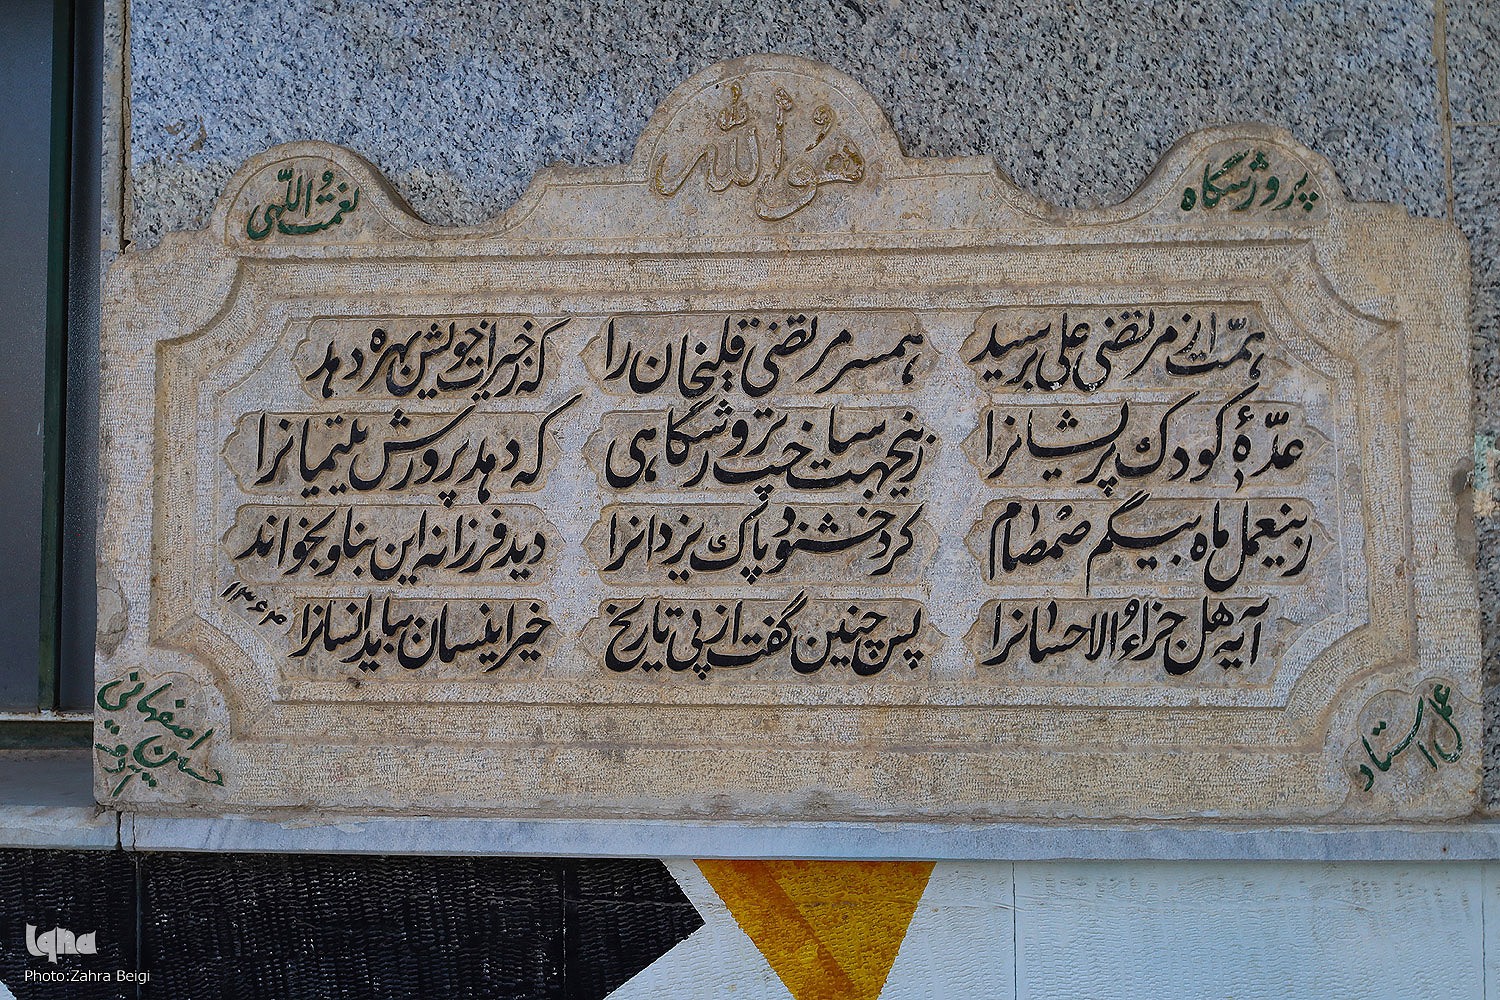 هو الله
پرورشگاه نعمت اللهی
همّت از مرتضی علی برسید همسر مرتضی قلیخان را که ز خیرات خویش بهره دهد
عدّهٔ کودک پریشانرا زینجهت ساخت پرورشگاهی که دهد پرورش یتیمانرا
زینعمل ماه بیگم صمصام کرد خشنود پاک یزدانرا دید فرزانه این بنا و بخواند
آیه هل جزاء الاحسانرا پس چنین گفت از پی تاریخ خیر اینسان بباید انسانرا
عمل استاد حسین اصفهانی
Iqna
Photo:Zahra Beigi